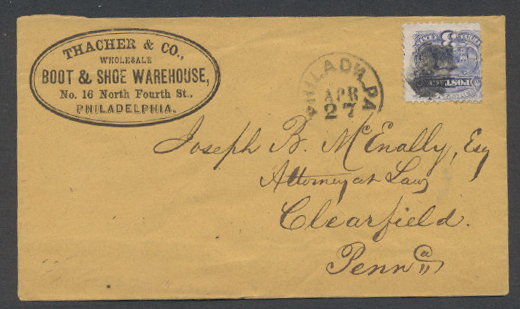 THACHER & CO.,
WHOLESALE
BOOT & SHOE WAREHOUSE,
No. 16 North Fourth St.,
PHILADELPHIA.
PHILAD'A. PA
APR
27
Joseph B. McEnally, Esq
Attorney at Law
Clearfield.
Penna